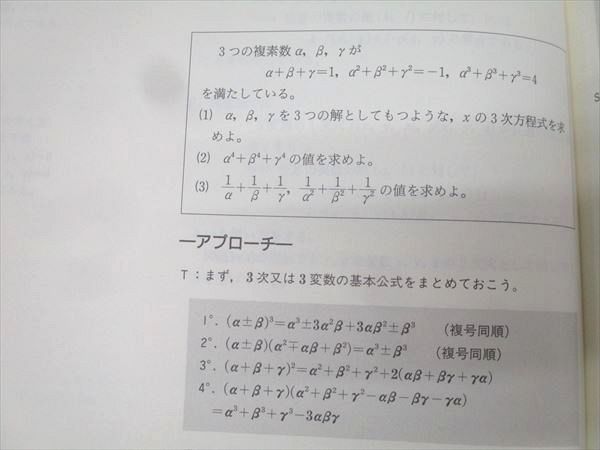 3つの複素数 α, β, γ が
α+β+γ=1, α²+β²+γ²=−1, α³+β³+γ³=4
を満たしている。
(1) α, β, γ を3つの解としてもつような, x の3次方程式を求
めよ。
(2) α⁴+β⁴+γ⁴ の値を求めよ。
(3) 1/α+1/β+1/γ, 1/α²+1/β²+1/γ² の値を求めよ。
―アプローチ―
T:まず, 3次又は3変数の基本公式をまとめておこう。
1°. (α±β)³=α³±3α²β+3αβ²±β³ (複号同順)
2°. (α±β)(α²∓αβ+β²)=α³±β³ (複号同順)
3°. (α+β+γ)²=α²+β²+γ²+2(αβ+βγ+γα)
4°. (α+β+γ)(α²+β²+γ²−αβ−βγ−γα)
=α³+β³+γ³−3αβγ